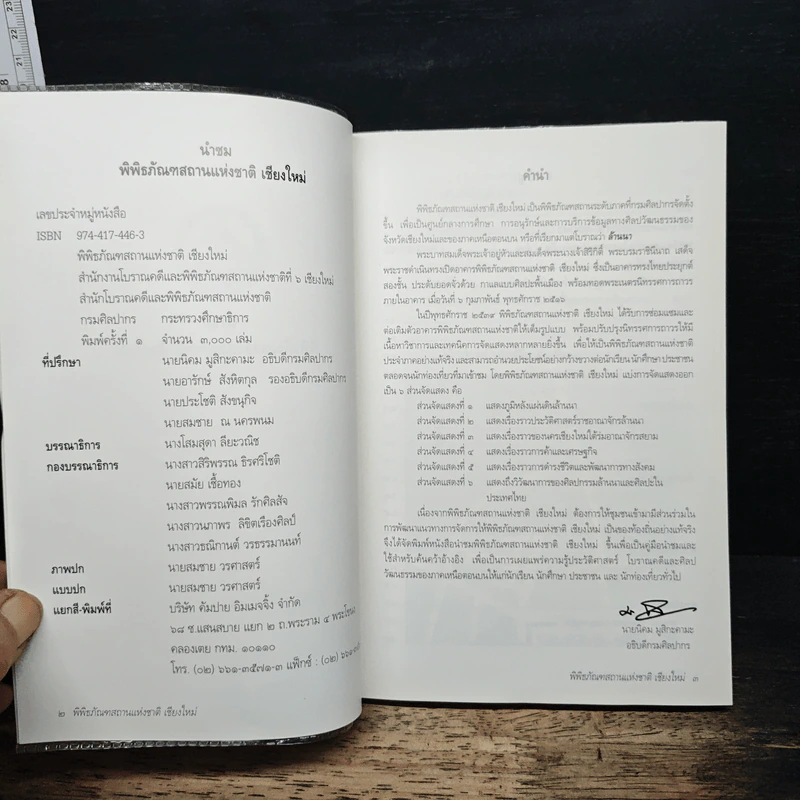 นำชม
พิพิธภัณฑสถานแห่งชาติ เชียงใหม่
เลขประจำหมู่หนังสือ
ISBN 974-417-446-3
พิพิธภัณฑสถานแห่งชาติ เชียงใหม่
สำนักงานโบราณคดีและพิพิธภัณฑสถานแห่งชาติที่ ๖ เชียงใหม่
สำนักโบราณคดีและพิพิธภัณฑสถานแห่งชาติ
กรมศิลปากร กระทรวงศึกษาธิการ
พิมพ์ครั้งที่ ๑ จำนวน ๓,๐๐๐ เล่ม
ที่ปรึกษา นายนิคม มูสิกะคามะ อธิบดีกรมศิลปากร
นายอารักษ์ สังหิตกุล รองอธิบดีกรมศิลปากร
นายประโชติ สังขนุกิจ
นายสมชาย ณ นครพนม
บรรณาธิการ นางโสมสุดา ลียะวณิช
กองบรรณาธิการ นางสาวสิริพรรณ ธิรศริโชติ
นายสมัย เชื้อทอง
นางสาวพรรณพิมล รักศิลสัจ
นางสาวนภาพร ลิขิตเรืองศิลป์
นางสาวธณิกานต์ วรธรรมานนท์
ภาพปก นายสมชาย วรศาสตร์
แบบปก นายสมชาย วรศาสตร์
แยกสี-พิมพ์ที่ บริษัท คัมปาย อิมเมจจิ้ง จำกัด
๖๘ ซ.แสนสบาย แยก ๒ ถ.พระราม ๔ พระโขนง
คลองเตย กทม. ๑๐๑๑๐
โทร. (๐๒) ๖๖๑-๓๕๗๑-๓ แฟ็กซ์ : (๐๒)
๒ พิพิธภัณฑสถานแห่งชาติ เชียงใหม่
คำนำ
พิพิธภัณฑสถานแห่งชาติ เชียงใหม่ เป็นพิพิธภัณฑสถานระดับภาคที่กรมศิลปากรจัดตั้ง
ขึ้น เพื่อเป็นศูนย์กลางการศึกษา การอนุรักษ์และการบริการข้อมูลทางศิลปวัฒนธรรมของ
จังหวัดเชียงใหม่และของภาคเหนือตอนบน หรือที่เรียกมาแต่โบราณว่า ล้านนา
พระบาทสมเด็จพระเจ้าอยู่หัวและสมเด็จพระนางเจ้าสิริกิติ์ พระบรมราชินีนาถ เสด็จ
พระราชดำเนินทรงเปิดอาคารพิพิธภัณฑสถานแห่งชาติ เชียงใหม่ ซึ่งเป็นอาคารทรงไทยประยุกต์
สองชั้น ประดับยอดจั่วด้วย กาแลแบบศิลปะพื้นเมือง พร้อมทอดพระเนตรนิทรรศการถาวร
ภายในอาคาร เมื่อวันที่ ๖ กุมภาพันธ์ พุทธศักราช ๒๕๑๖
ในปีพุทธศักราช ๒๕๓๙ พิพิธภัณฑสถานแห่งชาติ เชียงใหม่ ได้รับการซ่อมแซมและ
ต่อเติมตัวอาคารพิพิธภัณฑสถานแห่งชาติให้เต็มรูปแบบ พร้อมปรับปรุงนิทรรศการถาวรให้มี
เนื้อหาวิชาการและเทคนิคการจัดแสดงหลากหลายยิ่งขึ้น เพื่อให้เป็นพิพิธภัณฑสถานแห่งชาติ
ประจำภาคอย่างแท้จริงและสามารถอำนวยประโยชน์อย่างกว้างขวางต่อนักเรียน นักศึกษา ประชาชน
ตลอดจนนักท่องเที่ยวที่มาเข้าชม โดยพิพิธภัณฑสถานแห่งชาติ เชียงใหม่ แบ่งการจัดแสดงออก
เป็น ๖ ส่วนจัดแสดง คือ
ส่วนจัดแสดงที่ ๑ แสดงภูมิหลังแผ่นดินล้านนา
ส่วนจัดแสดงที่ ๒ แสดงเรื่องราวประวัติศาสตร์ราชอาณาจักรล้านนา
ส่วนจัดแสดงที่ ๓ แสดงเรื่องราวของนครเชียงใหม่ใต้ร่มอาณาจักรสยาม
ส่วนจัดแสดงที่ ๔ แสดงเรื่องราวการค้าและเศรษฐกิจ
ส่วนจัดแสดงที่ ๕ แสดงเรื่องราวการดำรงชีวิตและพัฒนาการทางสังคม
ส่วนจัดแสดงที่ ๖ แสดงถึงวิวัฒนาการของศิลปกรรมล้านนาและศิลปะใน
ประเทศไทย
เนื่องจากพิพิธภัณฑสถานแห่งชาติ เชียงใหม่ ต้องการให้ชุมชนเข้ามามีส่วนร่วมใน
การพัฒนาแนวทางการจัดการให้พิพิธภัณฑสถานแห่งชาติ เชียงใหม่ เป็นของท้องถิ่นอย่างแท้จริง
จึงได้จัดพิมพ์หนังสือนำชมพิพิธภัณฑสถานแห่งชาติ เชียงใหม่ ขึ้นเพื่อเป็นคู่มือนำชมและ
ใช้สำหรับค้นคว้าอ้างอิง เพื่อเป็นการเผยแพร่ความรู้ประวัติศาสตร์ โบราณคดีและศิลป
วัฒนธรรมของภาคเหนือตอนบนให้แก่นักเรียน นักศึกษา ประชาชน และ นักท่องเที่ยวทั่วไป
นายนิคม มูสิกะคามะ
อธิบดีกรมศิลปากร
พิพิธภัณฑสถานแห่งชาติ เชียงใหม่ ๓